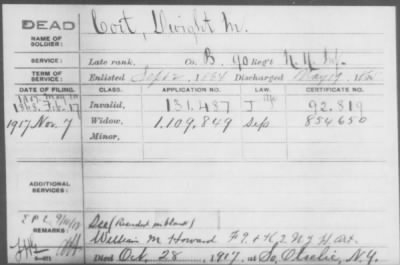 DEAD
NAME OF SOLDIER: Coit, Dwight M.
SERVICE: Late rank, Co. B, 90 Reg't N. Y. Inf.
TERM OF SERVICE: Enlisted Sept 2, 1864 Discharged
DATE OF FILING. CLASS. APPLICATION NO. LAW. CERTIFICATE NO.
Feb. 17 Invalid, 131,487 J 92,819
1917 Nov. 7 Widow, 1,109,849 854650
Minor,
ADDITIONAL SERVICES:
William M Howard F 9. & K 2 N Y H. Art.
Died Oct. 28, 1917, at So. N.Y.